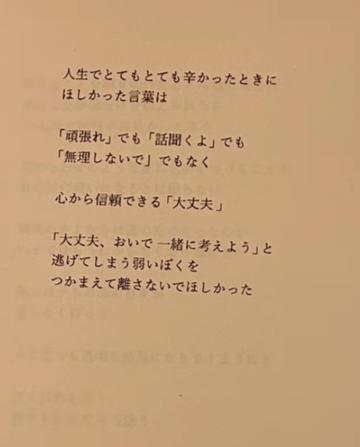 人生でとてもとても辛かったときに
ほしかった言葉は
「頑張れ」でも「話聞くよ」でも
「無理しないで」でもなく
心から信頼できる「大丈夫」
「大丈夫、おいで 一緒に考えよう」と
逃げてしまう弱いぼくを
つかまえて離さないでほしかった